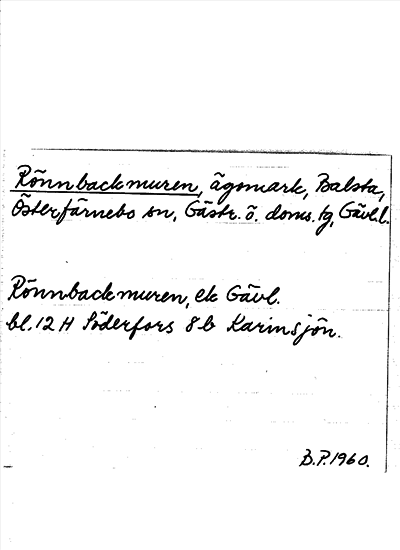 Rönnbackmuren, ägomark, Balsta,
Österfärnebo sn, Gästr. ö. doms. tg, Gävl. l.
Rönnbackmuren, ek Gävl.
bl. 12 H Söderfors 8 b Karinsjön.
B.P. 1960.